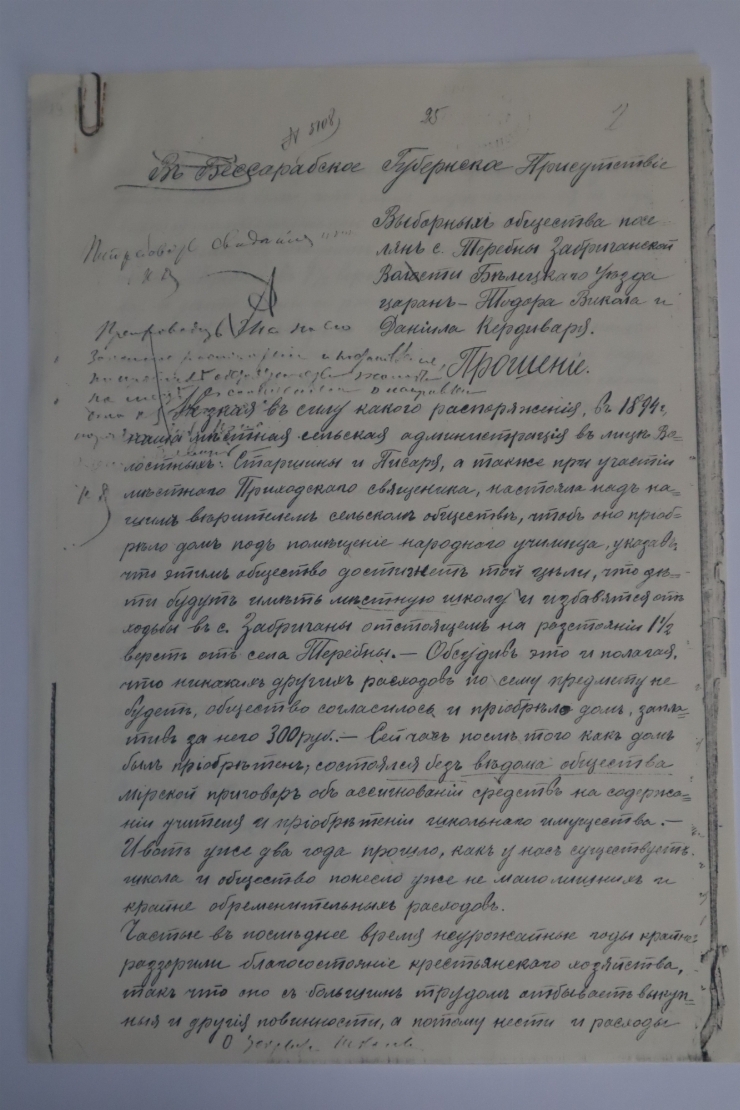 № 5108
95
Въ Бессарабское Губернска Присутствіе
Выборныхъ общества посе-
лянъ с. Теребны Забричанской
Волости Бѣлецкаго Уѣзда
царанъ - Тодора Викола и
Даніила Кердиваря.
Прошеніе.
въ силу какого распоряженія, въ 1894 г.
наша мѣстная сельская администрація въ лицѣ Во-
лостныхъ: Старшины и Писаря, а также при участіи
мѣстнаго Приходскаго священика, настояла надъ на-
шимъ вѣрителемъ сельскомъ обществѣ, чтобъ оно пріоб-
рѣло домъ подъ помѣщеніе народнаго училища, указавъ
что этимъ общество достигнетъ той цѣли, что дѣ-
ти будутъ имѣть мѣстную школу и избавятся отъ
ходьбы въ с. Забричаны отстоящемъ на разстояніи 1 1/2
верстъ отъ села Теребны. - Обсудивъ это и полагая,
что никакихъ другихъ расходовъ по сему предмѣту не
будетъ, общество согласилось и пріобрѣло домъ, запла-
тивъ за него 300 руб. - Сейчасъ послѣ того какъ домъ
былъ пріобрѣтенъ, состоялся безъ вѣдома общества
мірской приговаръ объ ассигнованіи средствъ на содержа-
ніи учителя и пріобрѣтеніи школьнаго имущества. -
И вотъ уже два года прошло, какъ у насъ существуетъ
школа и общество понесло уже не мало лишнихъ и
крайне обременительныхъ расходовъ.
Частые въ послѣднее время неурожайные годы крайне
раззорили благосостояніе крестьянскаго хозяйства,
такъ что оно съ большимъ трудомъ отбываетъ выкуп-
ныя и другія повинности, а потому нести и расходы